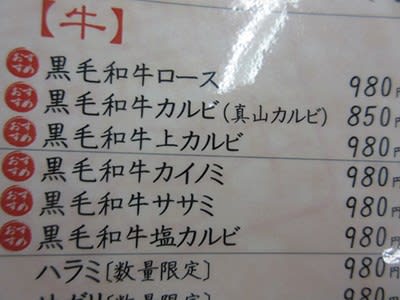 【牛】
おすすめ 黒毛和牛ロース 980円
おすすめ 黒毛和牛カルビ(真山カルビ) 850円
おすすめ 黒毛和牛上カルビ 980円
おすすめ 黒毛和牛カイノミ 980円
おすすめ 黒毛和牛ササミ 980円
おすすめ 黒毛和牛塩カルビ 980円
ハラミ[数量限定] 980円
[数量限定] 980